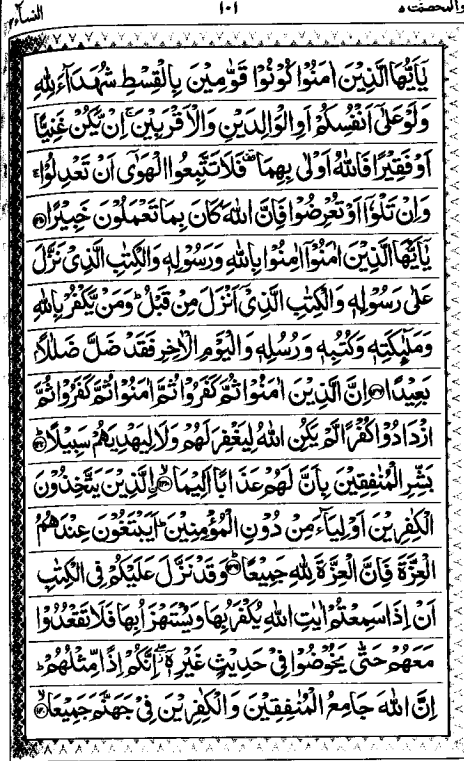 والمحصنت ٥ ١٠١ النساء ٤
يٰۤاَيُّهَا الَّذِيْنَ اٰمَنُوْا كُوْنُوْا قَوّٰمِيْنَ بِالْقِسْطِ شُهَدَآءَ لِلّٰهِ
وَلَوْ عَلٰۤى اَنْفُسِكُمْ اَوِ الْوَالِدَيْنِ وَالْاَقْرَبِيْنَ ۚ اِنْ يَّكُنْ غَنِيًّا
اَوْ فَقِيْرًا فَاللّٰهُ اَوْلٰى بِهِمَا ۫ فَلَا تَتَّبِعُوا الْهَوٰۤى اَنْ تَعْدِلُوْا ۚ
وَاِنْ تَلْوٗۤا اَوْ تُعْرِضُوْا فَاِنَّ اللّٰهَ كَانَ بِمَا تَعْمَلُوْنَ خَبِيْرًا ﴿۱۳۵﴾
يٰۤاَيُّهَا الَّذِيْنَ اٰمَنُوْۤا اٰمِنُوْا بِاللّٰهِ وَرَسُوْلِهٖ وَالْكِتٰبِ الَّذِيْ نَزَّلَ
عَلٰى رَسُوْلِهٖ وَالْكِتٰبِ الَّذِيْۤ اَنْزَلَ مِنْ قَبْلُ ؕ وَمَنْ يَّكْفُرْ بِاللّٰهِ
وَمَلٰٓئِكَتِهٖ وَكُتُبِهٖ وَرُسُلِهٖ وَالْيَوْمِ الْاٰخِرِ فَقَدْ ضَلَّ ضَلٰلًاۢ
بَعِيْدًا ﴿۱۳۶﴾ اِنَّ الَّذِيْنَ اٰمَنُوْا ثُمَّ كَفَرُوْا ثُمَّ اٰمَنُوْا ثُمَّ كَفَرُوْا ثُمَّ
ازْدَادُوْا كُفْرًا لَّمْ يَكُنِ اللّٰهُ لِيَغْفِرَ لَهُمْ وَلَا لِيَهْدِيَهُمْ سَبِيْلًا ؕ﴿۱۳۷﴾
بَشِّرِ الْمُنٰفِقِيْنَ بِاَنَّ لَهُمْ عَذَابًا اَلِيْمًا ۙ﴿۱۳۸﴾ اۨلَّذِيْنَ يَتَّخِذُوْنَ
الْكٰفِرِيْنَ اَوْلِيَآءَ مِنْ دُوْنِ الْمُؤْمِنِيْنَ ؕ اَيَبْتَغُوْنَ عِنْدَهُمُ
الْعِزَّةَ فَاِنَّ الْعِزَّةَ لِلّٰهِ جَمِيْعًا ؕ﴿۱۳۹﴾ وَقَدْ نَزَّلَ عَلَيْكُمْ فِى الْكِتٰبِ
اَنْ اِذَا سَمِعْتُمْ اٰيٰتِ اللّٰهِ يُكْفَرُ بِهَا وَيُسْتَهْزَاُ بِهَا فَلَا تَقْعُدُوْا
مَعَهُمْ حَتّٰى يَخُوْضُوْا فِيْ حَدِيْثٍ غَيْرِهٖۤ ۖ اِنَّكُمْ اِذًا مِّثْلُهُمْ ؕ
اِنَّ اللّٰهَ جَامِعُ الْمُنٰفِقِيْنَ وَالْكٰفِرِيْنَ فِيْ جَهَنَّمَ جَمِيْعًا ۙ﴿۱۴۰﴾